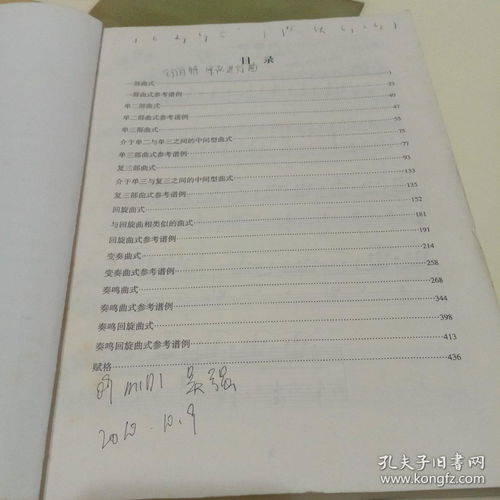 目 录
一部曲式 1
一部曲式参考谱例 23
单二部曲式 40
单二部曲式参考谱例 47
单三部曲式 55
介于单二与单三之间的中间型曲式 75
单三部曲式参考谱例 77
复三部曲式 93
介于单三与复三之间的中间型曲式 133
复三部曲式参考谱例 135
回旋曲式 152
与回旋曲相类似的曲式 181
回旋曲式参考谱例 191
变奏曲式 214
变奏曲式参考谱例 258
奏鸣曲式 268
奏鸣曲式参考谱例 344
奏鸣回旋曲式 398
奏鸣回旋曲式参考谱例 413
赋格 436
MINI
2010.10.9
孔夫子旧书网
www.kongfz.com